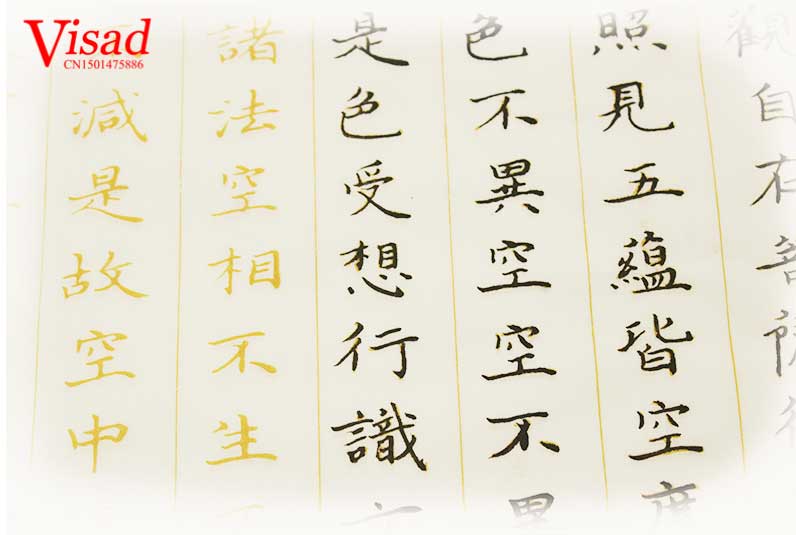 Visad
CN1501475886
觀自在菩薩行
照見五蘊皆空度
色不異空空不異
是色受想行識亦
諸法空相不生不
減是故空申